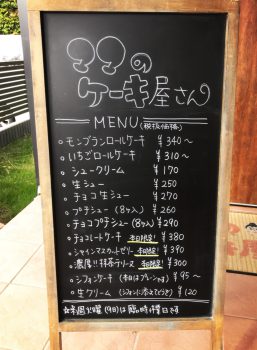 ママの
ケーキ屋さん
MENU (税抜価格)
○モンブランロールケーキ ¥340〜
○いちごロールケーキ ¥310〜
○シュークリーム ¥170
○生シュー ¥250
○チョコ生シュー ¥270
○プチシュー(8ヶ入) ¥260
○チョコプチシュー(8ヶ入) ¥290
○チョコレートケーキ 本日限定! ¥380
○シャインマスカットゼリー 本日限定! ¥390
○濃厚!!抹茶テリーヌ 本日限定! ¥300
○シフォンケーキ (本日はプレーンです) ¥95〜
○生クリーム (シフォンに添えてどうぞ) ¥120
☆来週火曜(9日)は臨時休業日です